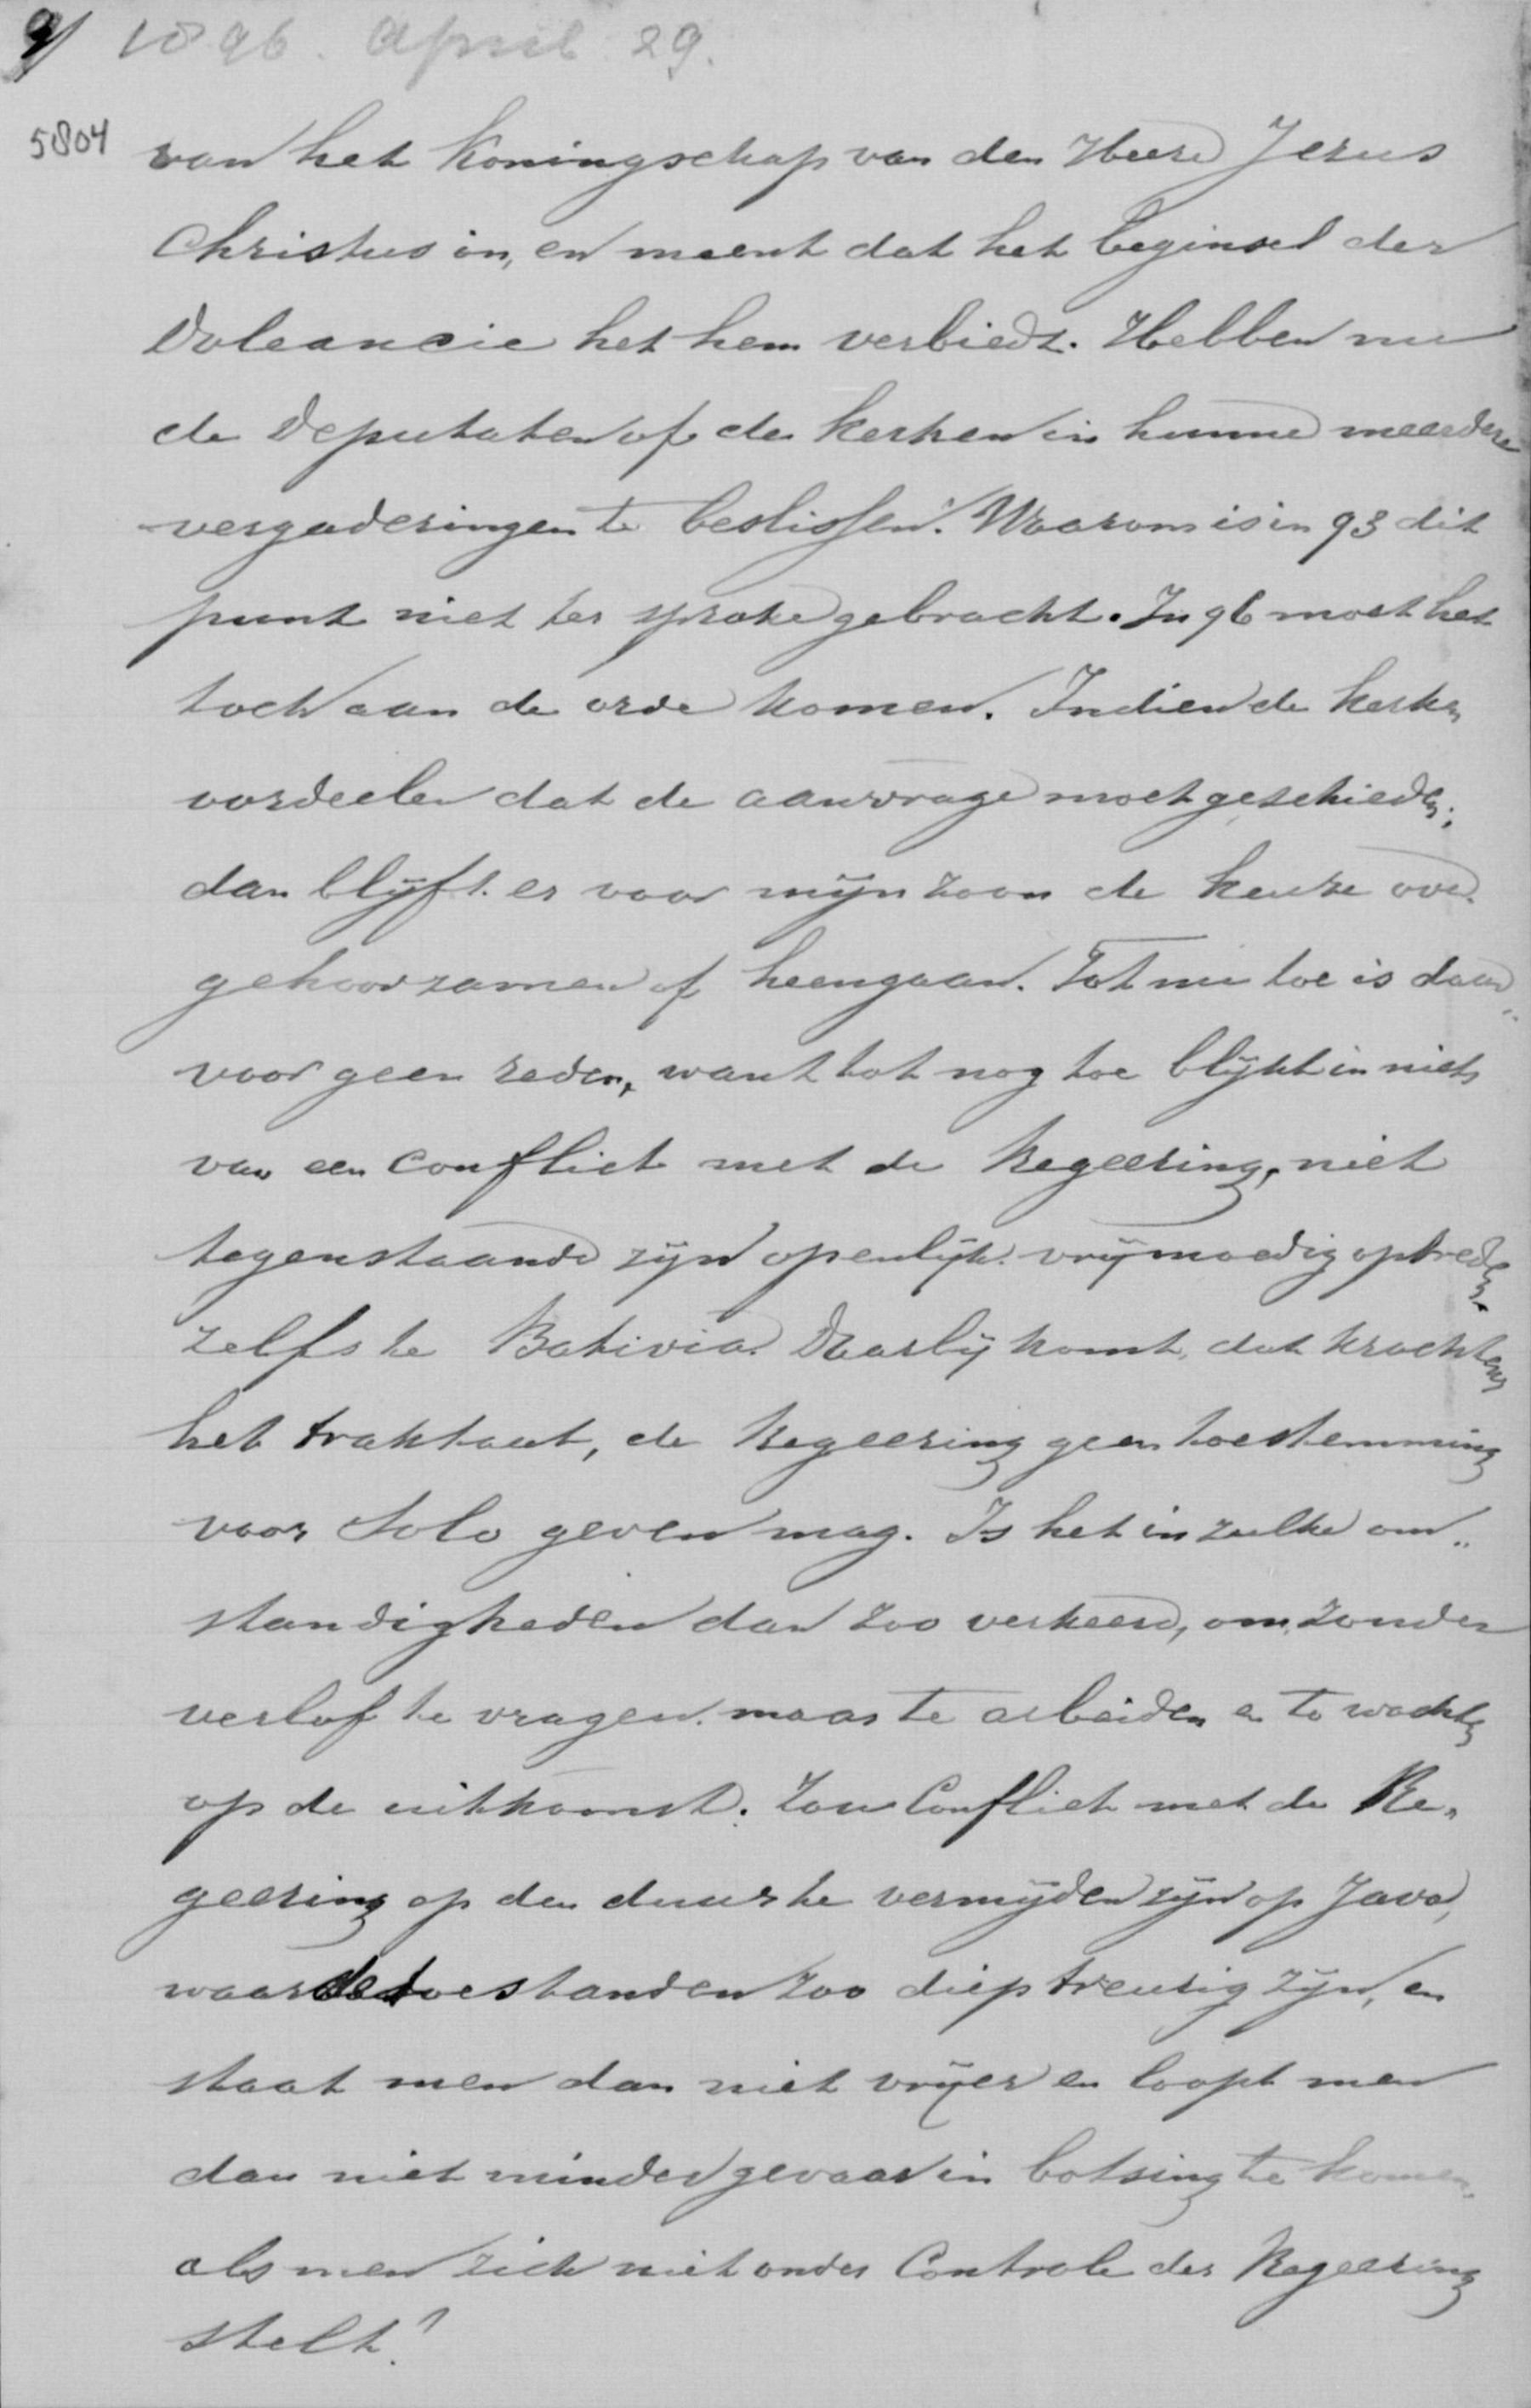 9/ 1896. April 29.
5804
van het Koningschap van den Heere Jezus
Christus in, en meent dat het beginsel der
Doleancie het hem verbiedt. Hebben nu
de Deputaten of de kerken in hunne meerdere
vergaderingen te beslissen? Waarom is in 93 dit
punt niet ter sprake gebracht. In 96 moet het
toch aan de orde komen. Indien de kerken
oordeelen dat de aanvrage moet geschieden;
dan blijft er voor mijn zoon de keuze over
gehoorzamen of heengaan. Tot nu toe is daar„
voor geen reden, want tot nog toe blijkt in niets
van een conflict met de Regeering, niet
tegenstaande zijn openlijk vrijmoedig optreden
zelfs te Bativia. Daarbij komt, dat krachtens
het traktaat, de Regeering geen toestemming
voor Solo geven mag. Is het in zulke om„
standigheden dan zoo verkeerd, om zonder
verlof te vragen maar te arbeiden en te wachten
op de uitkomst. Zou Conflict met de Re„
geering op den duur te vermijden zijn op Java,
waar de toestanden zoo diep treurig zijn, en
staat men dan niet vrijer en loopt men
dan niet minder gevaar in botsing te komen,
als men zich niet onder Controle der Regeering
stelt?